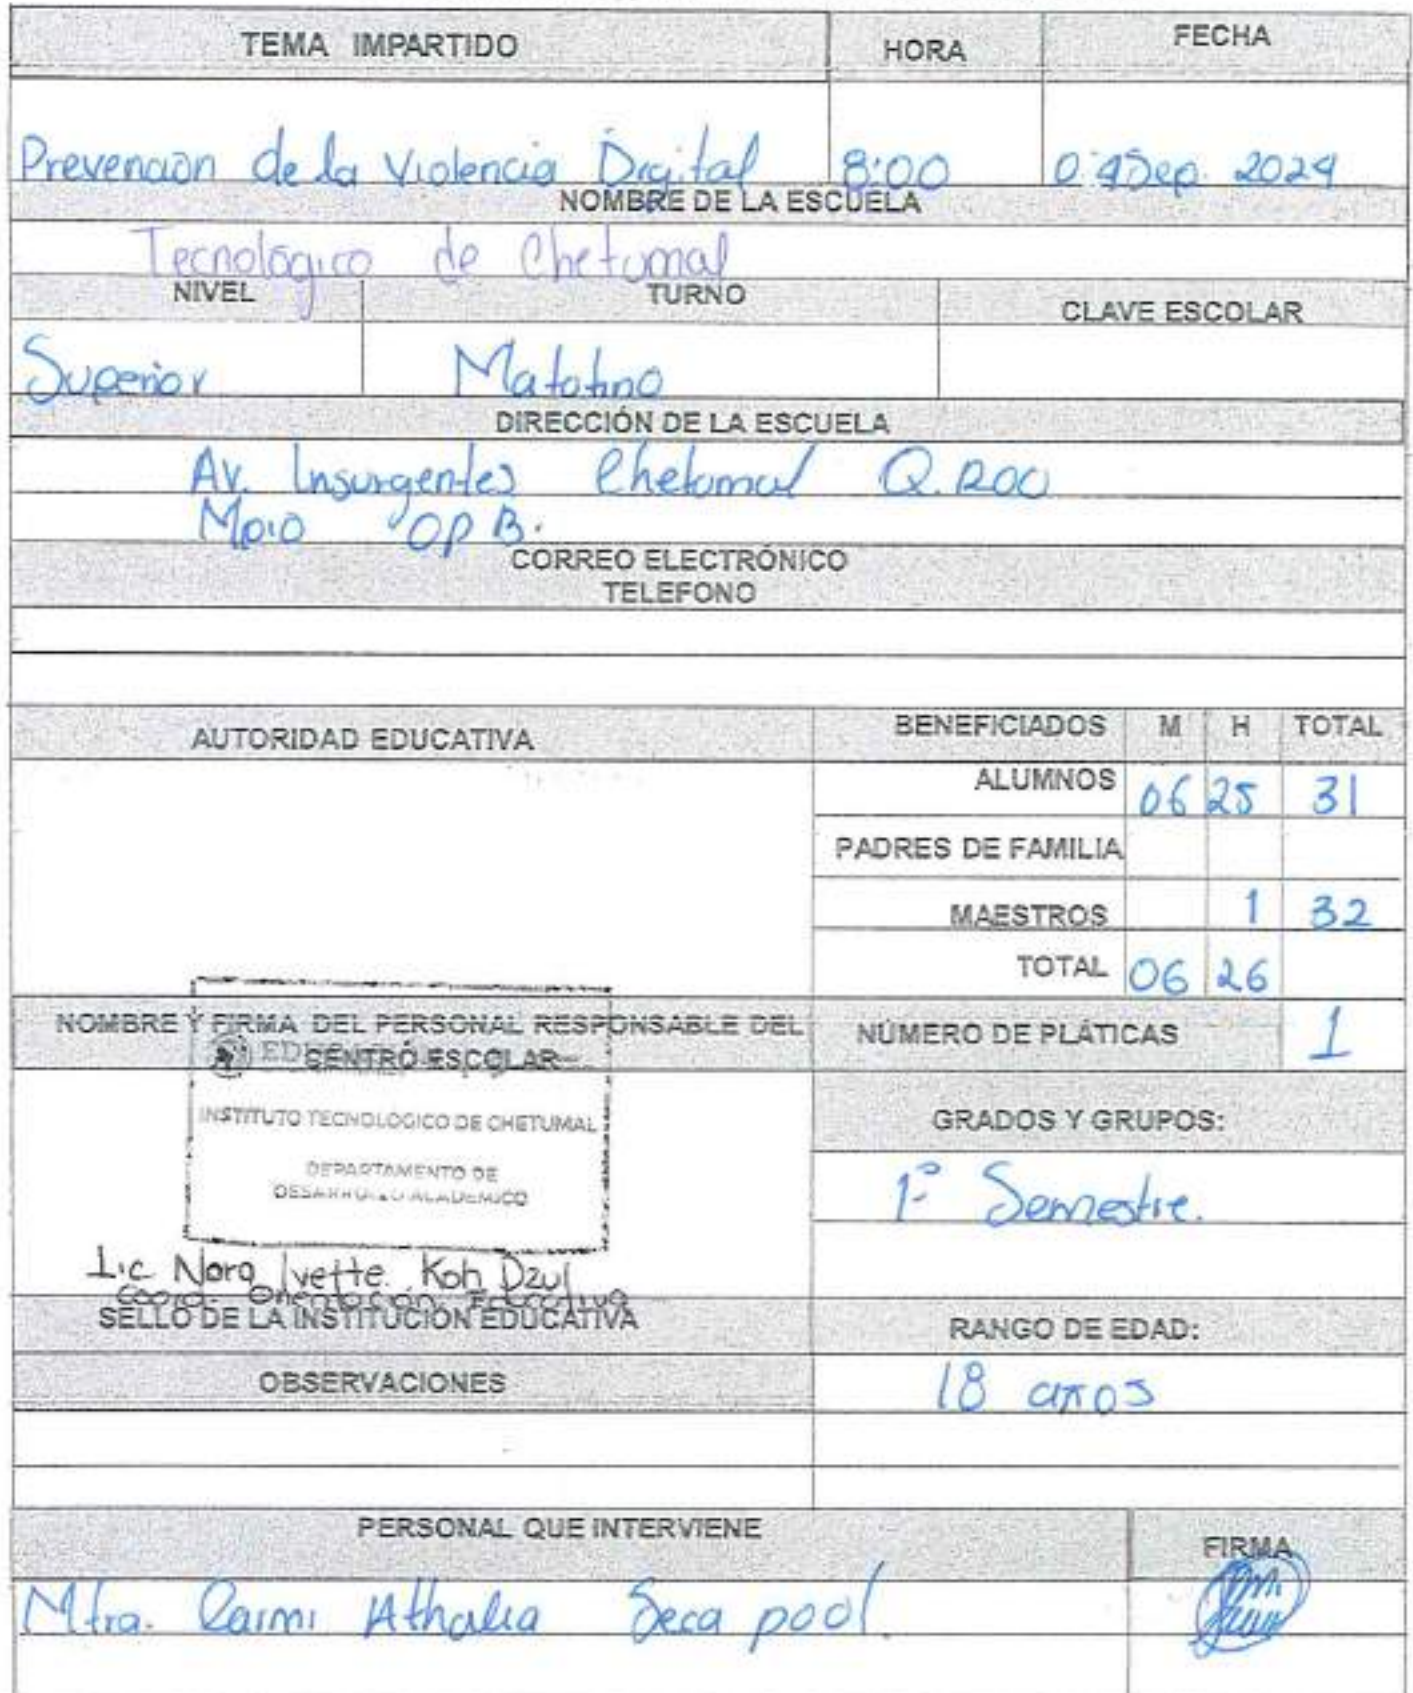 TEMA IMPARTIDO HORA FECHA
Prevención de la Violencia Digital 8:00 04 Sep. 2024
NOMBRE DE LA ESCUELA
Tecnológico de Chetumal
NIVEL TURNO CLAVE ESCOLAR
Superior Matutino
DIRECCIÓN DE LA ESCUELA
Av. Insurgentes Chetumal Q. Roo
Mpio OPB.
CORREO ELECTRÓNICO
TELEFONO
AUTORIDAD EDUCATIVA BENEFICIADOS M H TOTAL
ALUMNOS 06 25 31
PADRES DE FAMILIA
MAESTROS 1 32
TOTAL 06 26
NOMBRE Y FIRMA DEL PERSONAL RESPONSABLE DEL
CENTRO ESCOLAR
NÚMERO DE PLÁTICAS 1
INSTITUTO TECNOLÓGICO DE CHETUMAL
DEPARTAMENTO DE
DESARROLLO ACADÉMICO
GRADOS Y GRUPOS:
1º Semestre.
Lic Nora Ivette. Koh Dzul
Coord. Orientación Educativa
SELLO DE LA INSTITUCIÓN EDUCATIVA RANGO DE EDAD:
OBSERVACIONES 18 años
PERSONAL QUE INTERVIENE FIRMA
Mtra. Athalia pool.